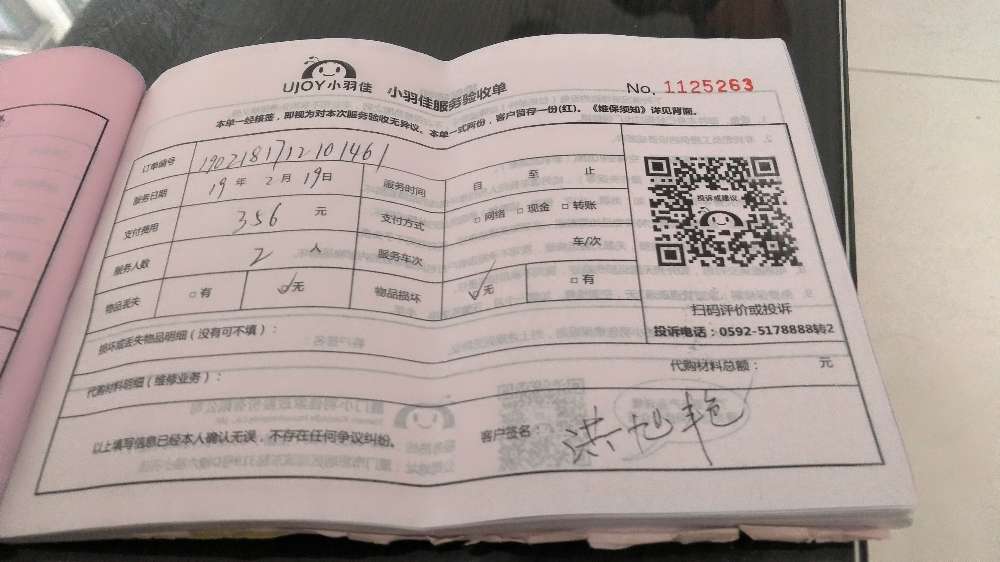 UJOY小羽佳 小羽佳服务验收单 No. 1125263
本单一经核签，即视为对本次服务验收无异议。本单一式两份，客户留存一份(红)。《维保须知》详见背面。
订单编号 1902181712101461
服务日期 19年2月19日 服务时间 日 至 止
支付费用 356 元 支付方式 □网络 □现金 □转账
服务人数 2 人 服务车次 车/次
物品丢失 □有 ☑无 物品损坏 ☑无 □有
投诉或建议
扫码评价或投诉
投诉电话：0592-5178888转2
损坏或丢失物品明细（没有可不填）：
代购材料明细（维修业务）： 代购材料总额： 元
以上填写信息已经本人确认无误，不存在任何争议纠纷。 客户签名： 洪旭艳